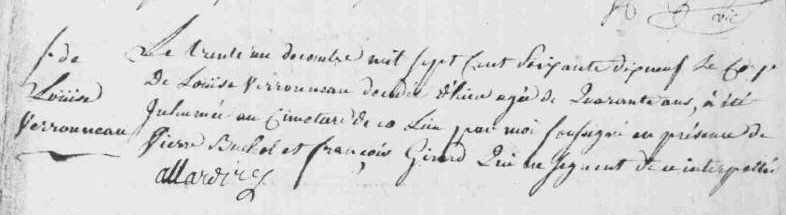 vic
s. de Louise Verronneau
Le trente un decembre mil sept cent soixante dix neuf le corps
De Loüise Verronneau decedée d'hier agée de Quarante ans, à été
Inhumée au Cimetiere de ce Lieu par moi soussigné en présence de
Pierre et françois Girard Qui ne signent de ce interpellés
allard